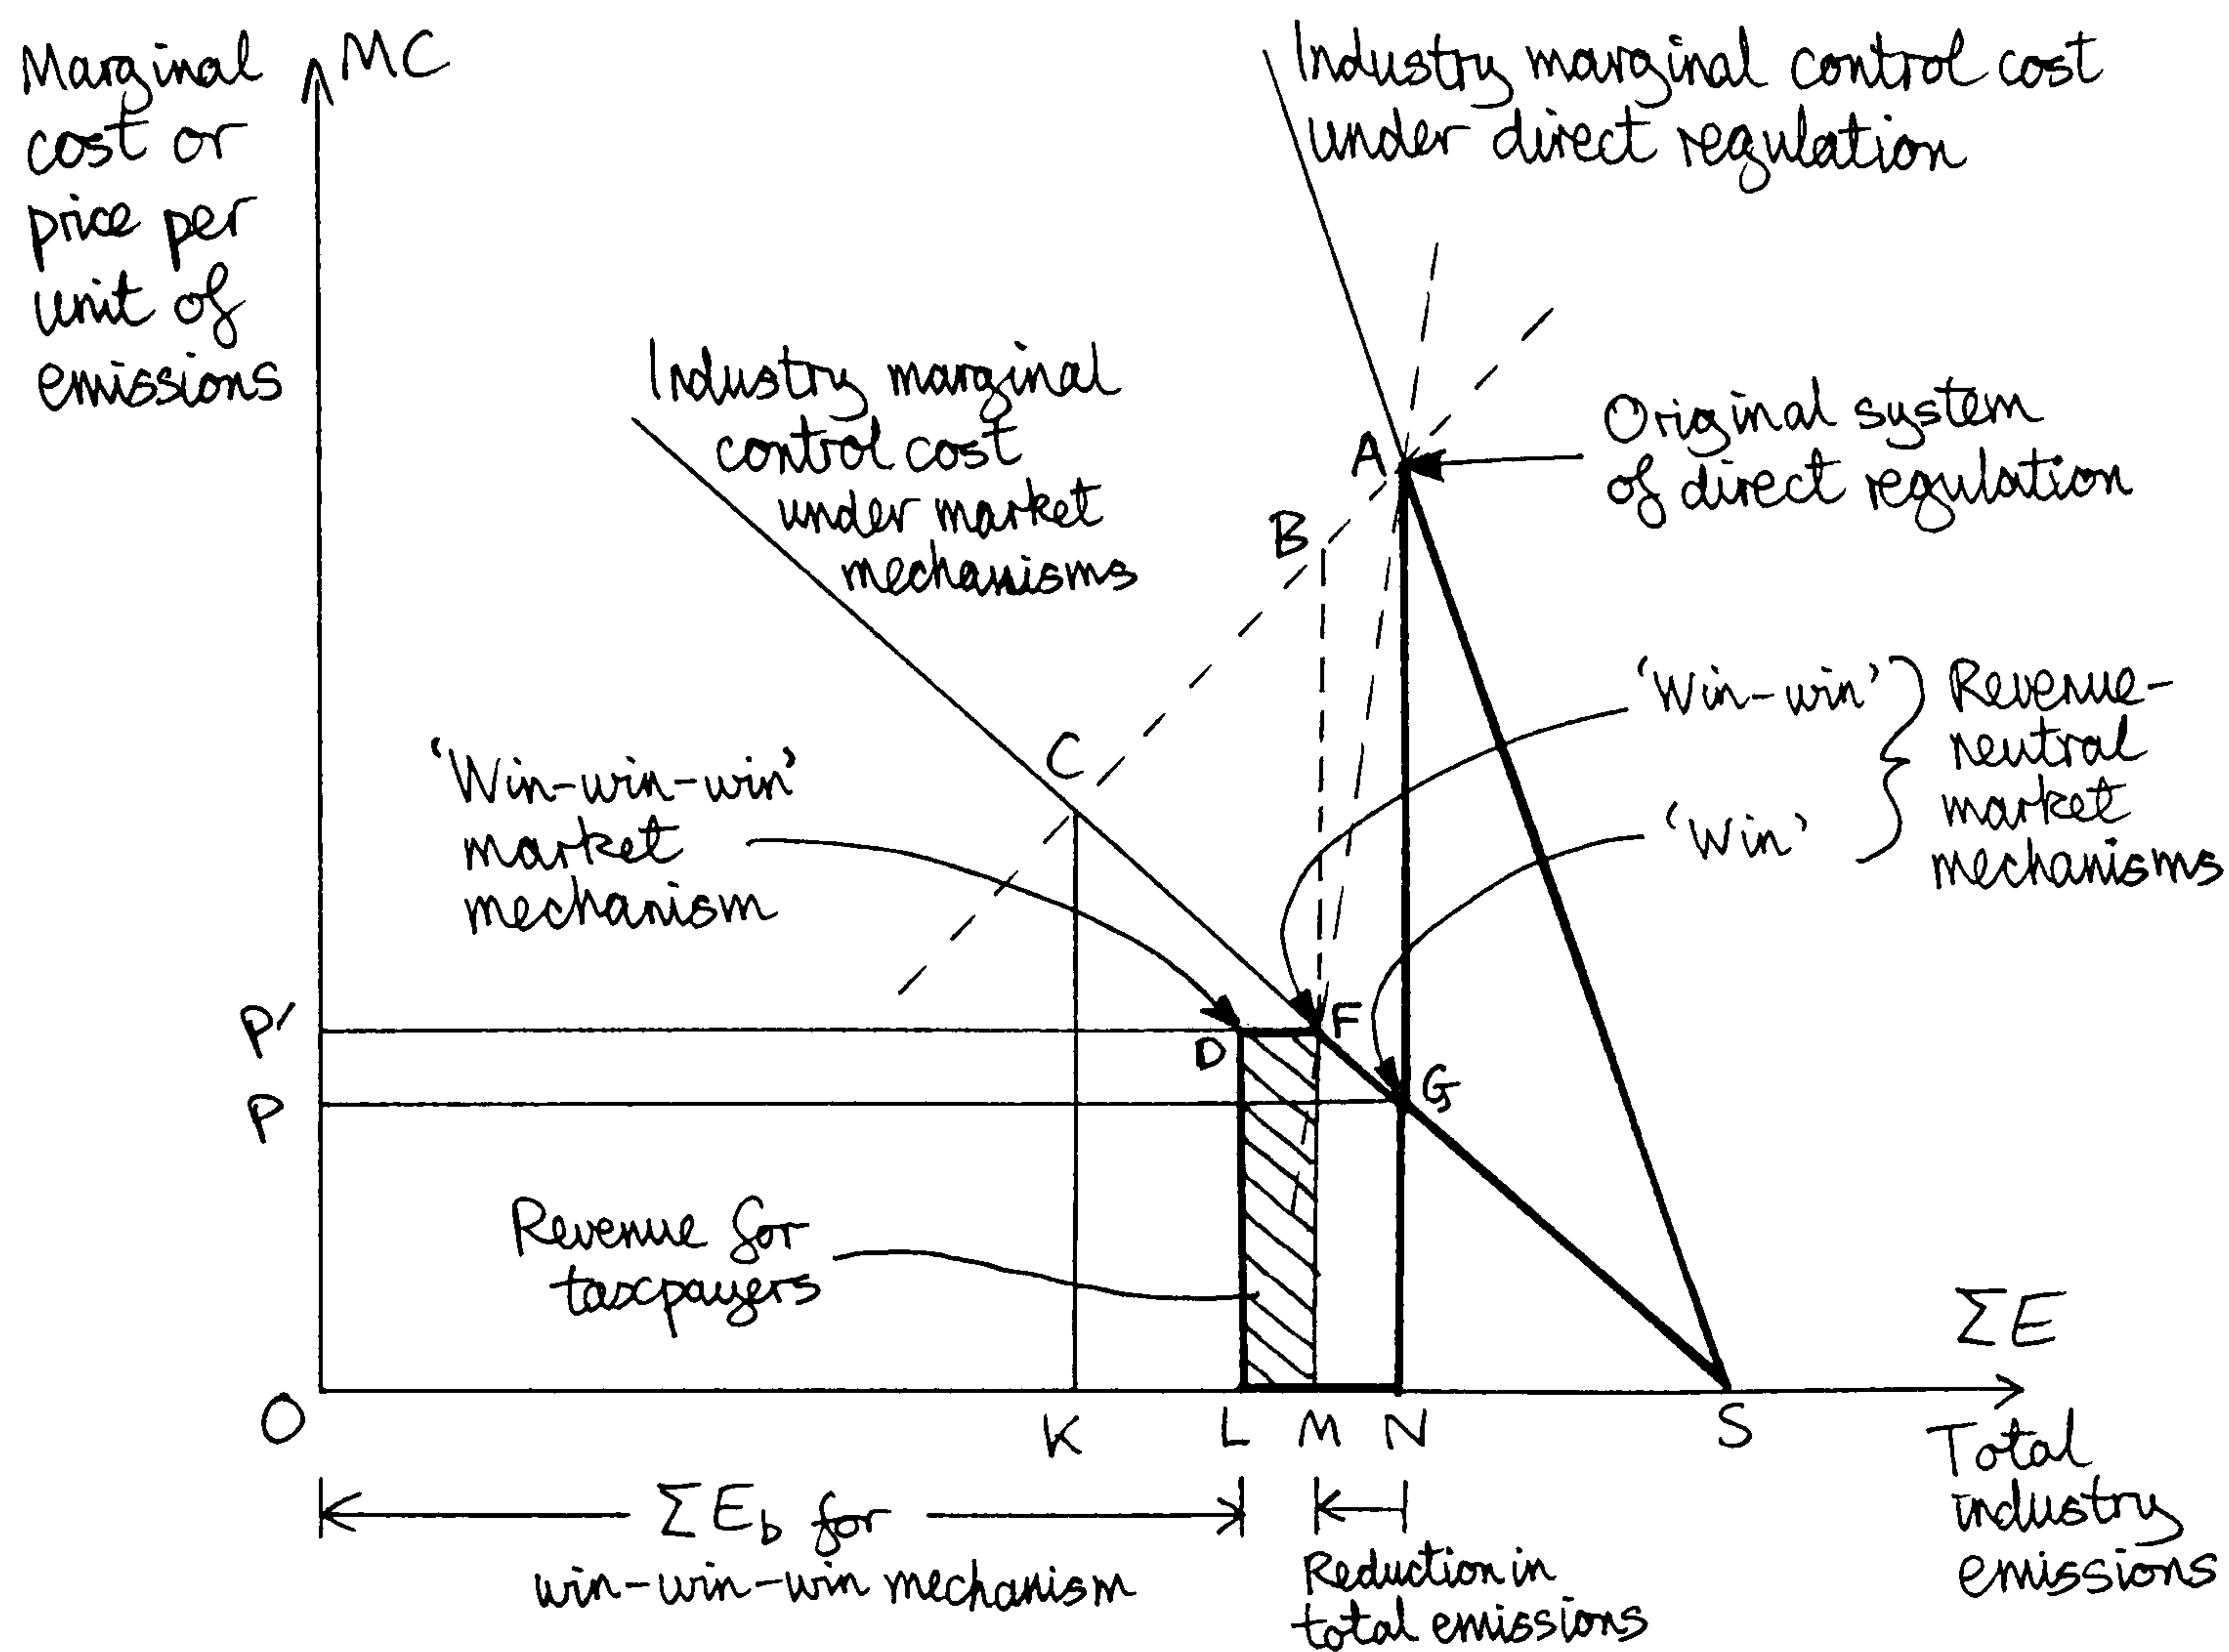 Marginal
cost or
price per
unit of
emissions
MC
Industry marginal control cost
under direct regulation
Industry marginal
control cost
under market
mechanisms
A
Original system
of direct regulation
B
C
'Win-win-win'
market
mechanism
'Win-win'
'Win'
Revenue-
neutral
market
mechanisms
P'
D
F
P
G
Revenue for
taxpayers
ΣE
O
K
L
M
N
S
Total
industry
emissions
ΣE_b for
win-win-win mechanism
Reduction in
total emissions